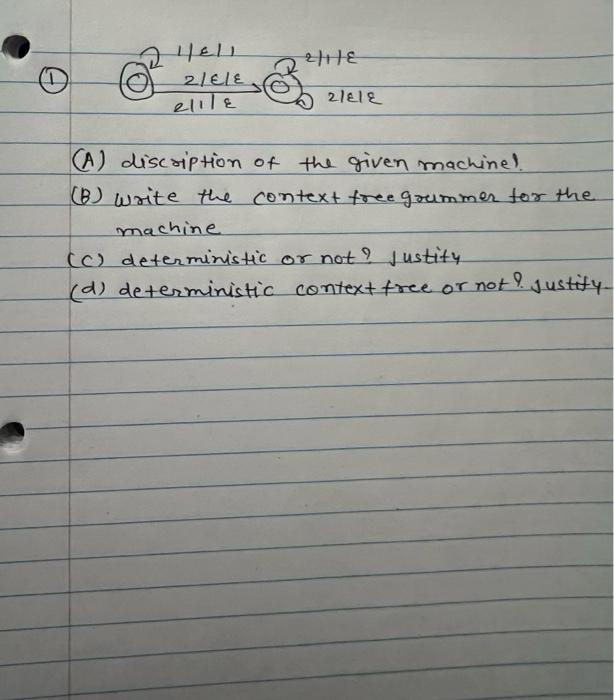 1/ε/1
2/1/ε
① 2/ε/ε
2/1/ε 2/ε/ε
(A) discription of the given machine!
(B) write the context free grummer for the
machine
(c) deterministic or not? Justify
(d) deterministic context free or not? Justify.